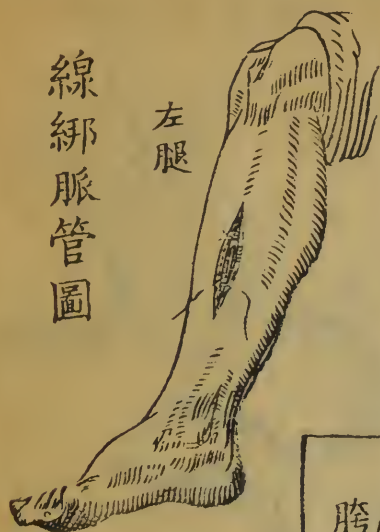 線綁脈管圖
左腿
胯